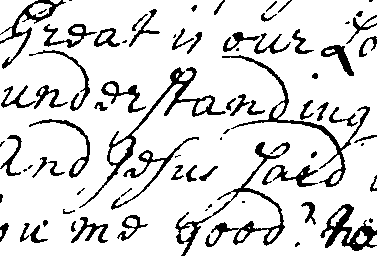 Great is our Lo
understanding
And Jesus said
me good? no